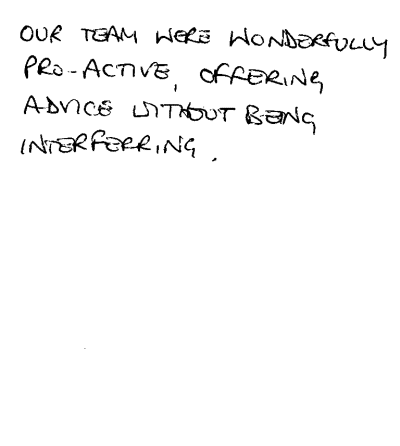 OUR TEAM WERE WONDERFULLY
PRO-ACTIVE, OFFERING
ADVICE WITHOUT BEING
INTERFERRING.